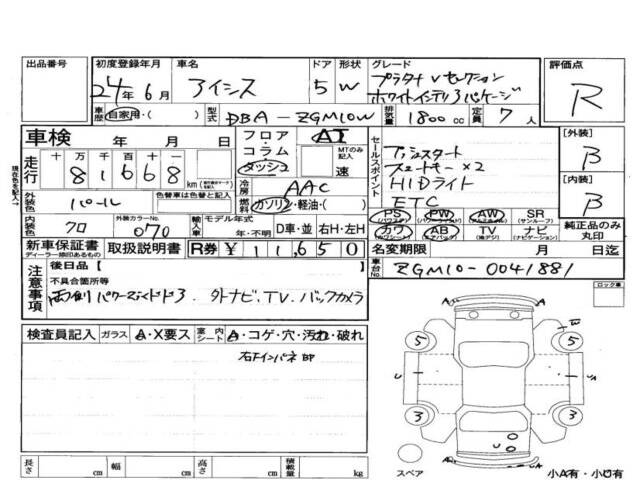 出品番号 初度登録年月 車名 ドア 形状 グレード 評価点
24年6月 アイシス 5 W プラタナ Vセレクション R
ホワイトインテリアパッケージ
車歴 自家用・( ) 型式 DBA-ZGM10W 排気量 1800cc 定員 7人
車検 年 月 日 フロア AT [外装]
コラム MTのみ記入 B
走行 十 万 千 百 十 一 ダッシュ 速 セールスポイント プッシュスタート
81668 km スマートキー×2
現在色を記入→ 冷房 AAC HIDライト [内装]
外装色 パール 色替車は色替と記入 燃料 ガソリン・軽油・( ) ETC B
内装色 クロ 外装カラーNo. 070 輸入車 モデル年式 年・不明 D車・並 右H・左H PS PW AW SR (サンルーフ)
カワ AB TV ナビ (ナビゲーション) 純正品のみ丸印
新車保証書 取扱説明書 R券 ¥11,650 名変期限 月 日迄
ディーラー捺印あるもの
注意事項 後日品【 】 車台No. ZGM10-0041881
不具合箇所等
両側パワースライドドア 外ナビ、TV、バックカメラ
ロック車
検査員記入 ガラス A・X要ス 室内シート A・コゲ・穴・汚れ・破れ
右インパネ
5 5
3 3
長さ cm 幅 cm 高さ cm 積載量 kg
スペア 小A有・小U有